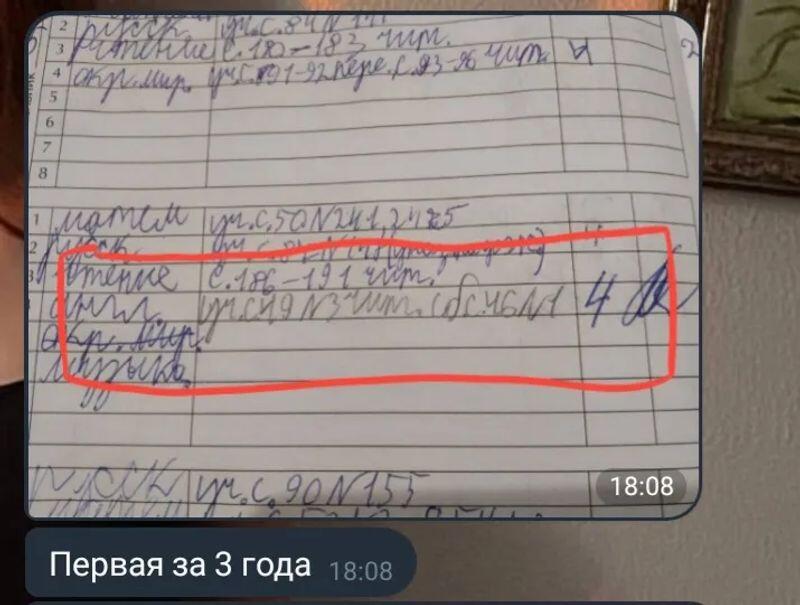 2 русск уч.с.84N141
3 чтение с.180-183 чит.
4 окр.мир. уч.с.91-92 пере. с.93-96 чит. 4
5
6
7
8
1 матем уч.с.50N241,
2 русск
чтение с.186-191 чит.
англ. уч.с.49N3 чит. с.46N1 4
окр.мир.
музыка
русск уч.с.90N155
18:08
Первая за 3 года 18:08